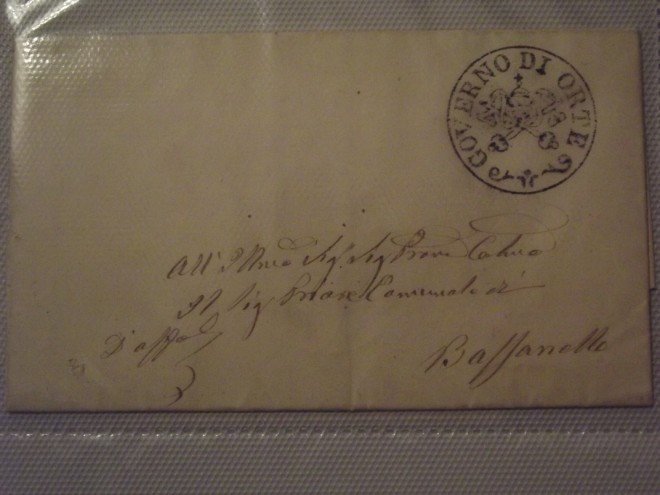 GOVERNO DI ORTE
All' Illmo Sig. Sig Prone Colmo
Il Sig Priore Comunale di
D'affo
Bassanello